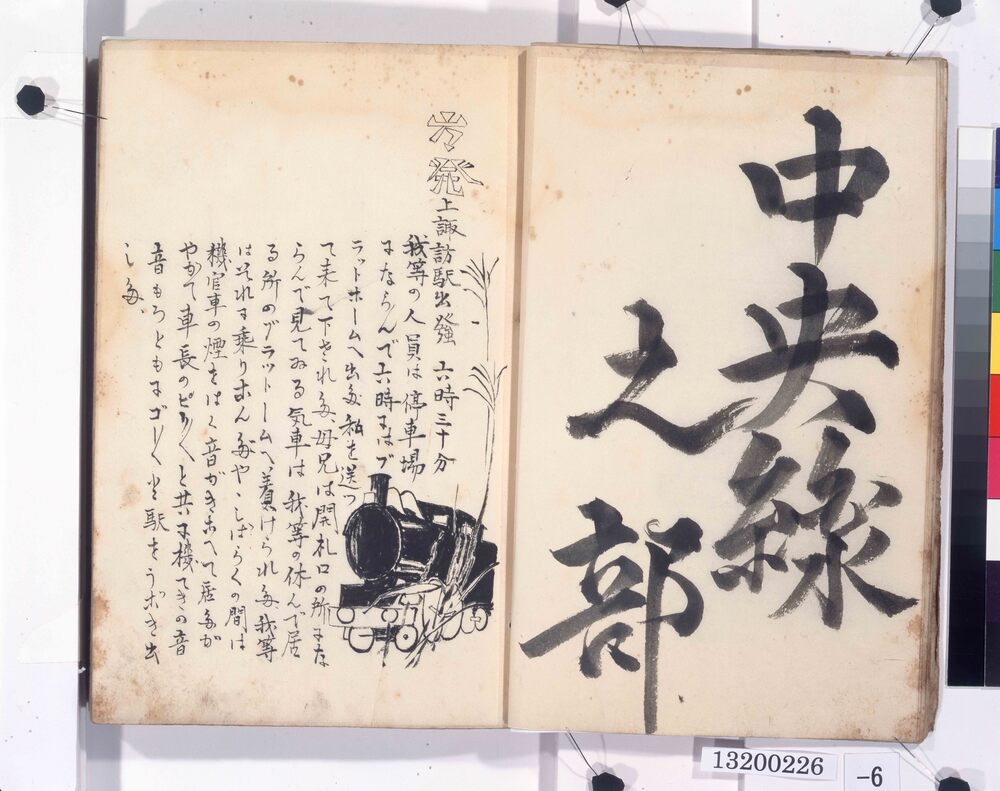 中央線
之部
出発
上諏訪駅出發 六時三十分
我等の人員は停車場
にならんで六時にはプ
ラットホームへ出た、私を送つ
て来て下された、母兄は開札口の所にな
らんで見てゐる気車は我等の休んで居
る所のプラットームへ着けられた我等
はそれに乗りこんだやゝしばらくの間は
機官車の煙をはく音がきこへて居たが
やがて車長のピリ〱と共に機てきの音
音もろともにゴー〱と駅をうごき出
した、
13200226
-6